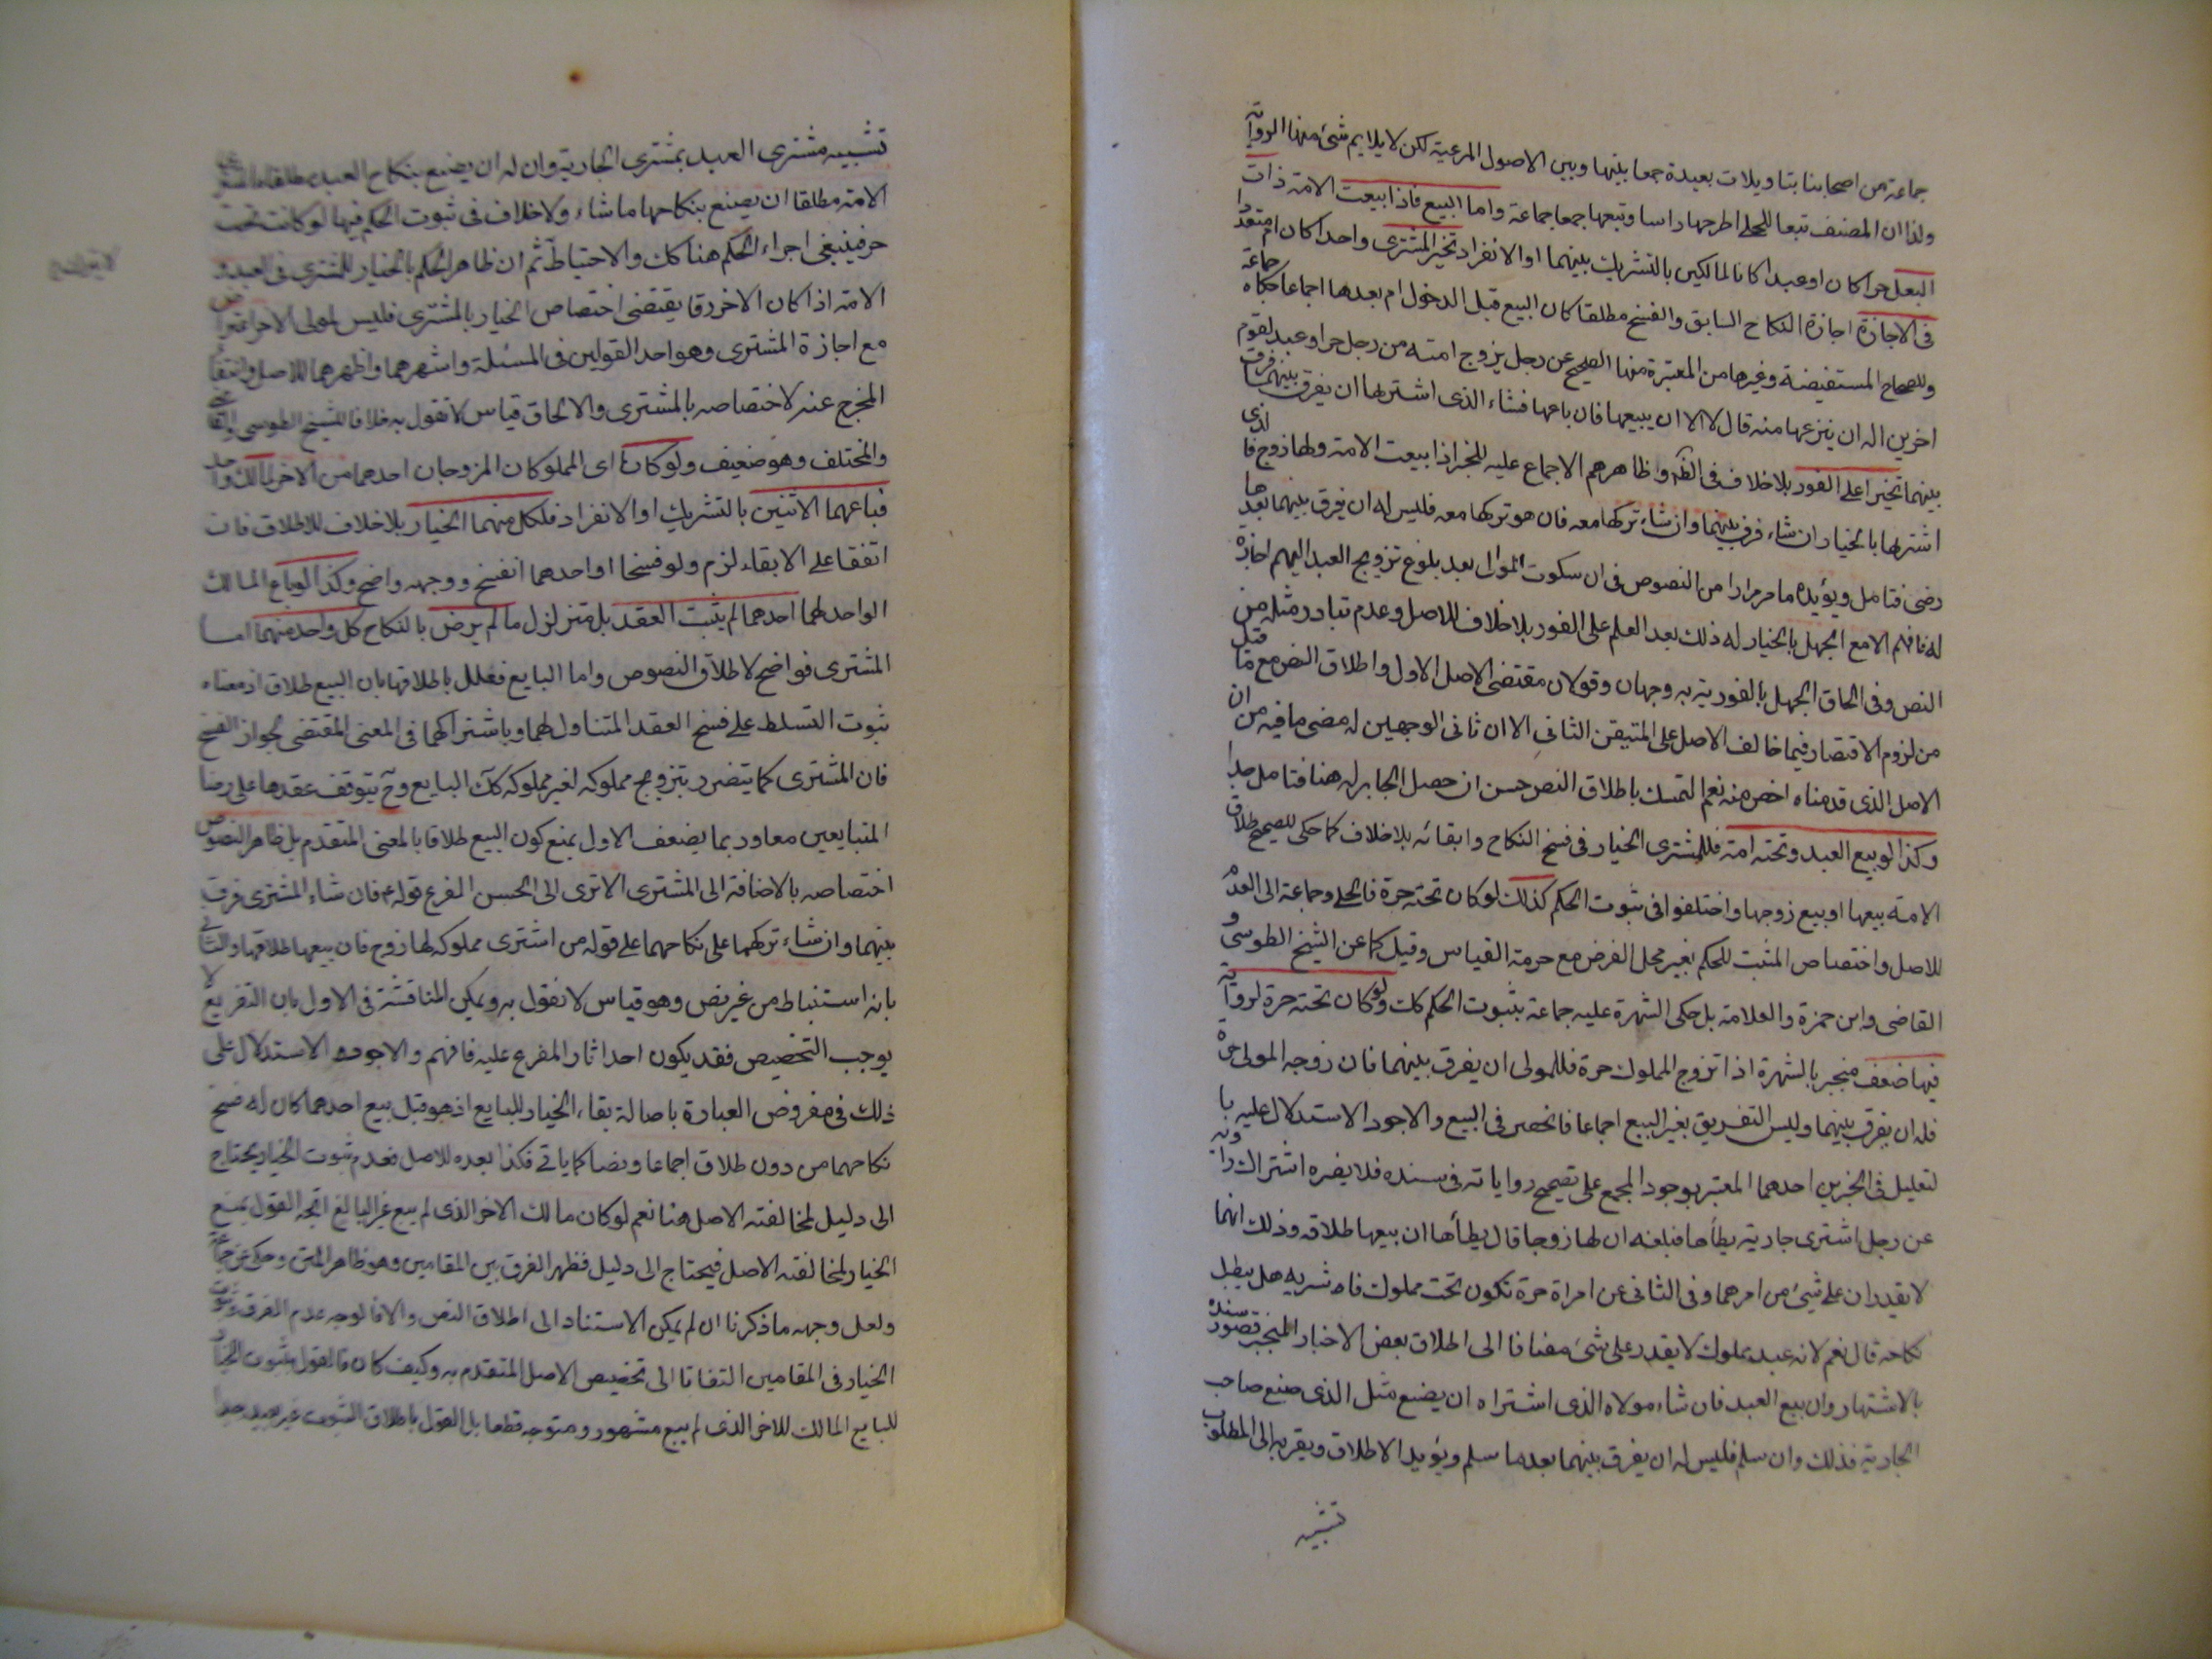 جماعة من اصحابنا بتاويلات بعيدة جمعا بينها وبين الاصول المرعية لكن لا يلايم شئ منها الرواية
ولذا ان المصنف تبعا للحلى اطرحها راسا وتبعهما جمعا جماعة واما البيع فاذا بيعت الامة ذات
البعل حرا كان او عبدا كانا لمالكين بالتشريك بينهما او الانفراد تخير المشترى واحدا كان ام متعددا
فى الاجازة اجازة النكاح السابق والفسخ مطلقا كان البيع قبل الدخول ام بعدها اجماعا حكاه جماعة
وللصحاح المستفيضة وغيرها من المعتبرة منها الصحيح عن رجل يزوج امته من رجل حر او عبد لقوم
اخرين اله ان ينزعها منه قال لا الا ان يبيعها فان باعها فشاء الذى اشتريها ان يفرق بينهما فرق
بينهما تخيرا على الفور بلاخلاف فى الظ وظاهرهم الاجماع عليه للخبر اذا بيعت الامة ولها زوج فالذى
اشتريها بالخيار ان شاء فرق بينهما وان شاء تركها معه فان هو تركها معه فليس له ان يفرق بينهما بعدها
رضى فتامل ويؤيده ما مر مرارا من النصوص فى ان سكوت الموالى بعد بلوغ تزويج العبد اليهم اجازة
له فافهم الا مع الجهل بالخيار له ذلك بعد العلم على الفور بلاخلاف للاصل وعدم تبادر مثله من
النص وفى الحاق الجهل بالفورية به وجهان وقولان مقتضى الاصل الاول واطلاق النص مع ما قبل
من لزوم الاقتصار فيما خالف الاصل على المتيقن الثانى الا ان ثانى الوجهين له مضى ما فيه من ان
الاصل الذى قدمناه اخص منه نعم التمسك باطلاق النص حسن ان حصل الجابر له هنا فتامل جدا
وكذا لو بيع العبد وتحته امة فللمشترى الخيار فى فسخ النكاح وابقائه بلاخلاف كما حكى للصحيح طلاق
الامة بيعها او بيع زوجها واختلفوا فى ثبوت الحكم كذلك لو كان تحته حرة فالحلى وجماعة الى العدم
للاصل واختصاص المثبت للحكم بغير محل الفرض مع حرمة القياس وقيل كما عن الشيخ الطوسى و
القاضى وابن حمزة والعلامة بل حكى الشهرة عليه جماعة بثبوت الحكم كك ولو كان تحته حرة لرواية
فيها ضعف منجبر بالشهرة اذا تزوج المملوك حرة فللمولى ان يفرق بينهما فان زوجه المولى حرة
فله ان يفرق بينهما وليس التفريق بغير البيع اجماعا فانحصر فى البيع والاجود الاستدلال عليه با
لتعليل فى الخبرين احدهما المعتبر بوجود المجمع على تصحيح رواياته فى سنده فلا يضره اشتراك راويه
عن رجل اشترى جارية يطأها فبلغه ان لها زوجا قال يطأها ان بيعها طلاقه وذلك انهما
لا يقدران على شئ من امرهما وفى الثانى عن امراة حرة تكون تحت مملوك فاشتريه هل يبطل
نكاحه قال نعم لانه عبد مملوك لا يقدر على شئ مضافا الى اطلاق بعض الاخبار المنجبر قصور سنده
بالاشتهار وان بيع العبد فان شاء مولاه الذى اشتراه ان يصنع مثل الذى صنع صاحب
الجارية فذلك وان سلم فليس له ان يفرق بينهما بعدما سلم ويؤيد الاطلاق ويقربه الى المطلوب
تشبيه
تشبيه مشترى العبد بمشترى الجارية وان له ان يصنع بنكاح العبد مطلقا
الامة مطلقا ان يصنع بنكاحها ما شاء ولا خلاف فى ثبوت الحكم فيها لو كانت تحت
حر فينبغى اجراء الحكم هنا كك والاحتياط ثم ان ظاهر الحكم بالخيار للمشترى فى العبد و
الامة اذا كان الاخر رقا يقتضى اختصاص الخيار بالمشترى فليس لمولى الاخر
مع اجازة المشترى وهو احد القولين فى المسئلة واشهرهما واظهرهما للاصل وانتفاء
المخرج عنه لاختصاصه بالمشترى والالحاق قياس لا نقول به خلافا للشيخ الطوسى
والمختلف وهو ضعيف ولو كانا اى المملوكان المزوجان احدهما من الاخر لمالك واحد
فباعهما الاثنين بالتشريك او الانفراد فلكل منهما الخيار بلاخلاف للاطلاق فان
اتفقا على الابقاء لزم ولو فسخا او احدهما انفسخ ووجهه واضح وكذا لو باع المالك
الواحد لهما احدهما لم يثبت العقد بل متزلزل ما لم يرض بالنكاح كل واحد منهما اما
المشترى فواضح لاطلاق النصوص واما البايع فعلل باطلاقها بان البيع طلاق اذ معناه
ثبوت التسلط على فسخ العقد المتناول لهما وباشتراكهما فى المعنى المقتضى لجواز الفسخ
فان المشترى كما يتضرر بتزويج مملوكه لغير مملوكه كك البايع وح يتوقف عقدها على رضا
المتبايعين معا وربما يضعف الاول بمنع كون البيع طلاقا بالمعنى المتقدم بل ظاهر النصوص
اختصاصه بالاضافة الى المشترى الا ترى الى الحسن المفرع قوله ع فان شاء المشترى فرق
بينهما وان شاء تركهما على نكاحهما على قوله من اشترى مملوكه لها زوج فان بيعها طلاقها والثانى
بانه استنباط من غير نص وهو قياس لا نقول به ويمكن المناقشة فى الاول بان التفريع لا
يوجب التخصيص فقد يكون احد اثار المفرع عليه فافهم والاجود الاستدلال على
ذلك فى مفروض العبارة باصالة بقاء الخيار للبايع اذ هو قبل بيع احدهما كان له فسخ
نكاحهما من دون طلاق اجماعا ونصا كما ياتى فكذا بعده للاصل فعدم ثبوت الخيار يحتاج
الى دليل لمخالفته الاصل هنا نعم لو كان مالك الاخر الذى لم يبع غير البايع اتجه القول بمنع
الخيار لمخالفته الاصل فيحتاج الى دليل فظهر الفرق بين المقامين وهو ظاهر المتن وحكى عن جماعة
ولعل وجهه ما ذكرنا ان لم يمكن الاستناد الى اطلاق النص والا فالوجه عدم الفرق وثبوت
الخيار فى المقامين التفاتا الى تخصيص الاصل المتقدم به وكيف كان فالقول بثبوت الخيار
للبايع المالك للاخر الذى لم يبع مشهور ومتوجه قطعا بل القول باطلاق الثبوت غير بعيد جدا